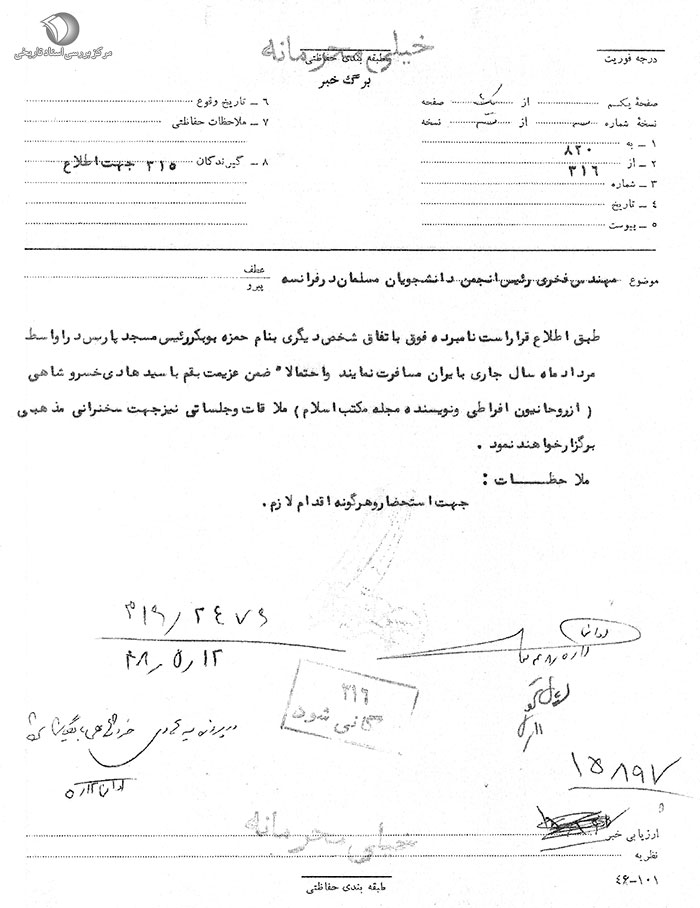 مرکز بررسی اسناد تاریخی
خیلی محرمانه
درجه فوریت
طبقه بندی حفاظتی
برگ خبر
صفحهٔ یکم از یک صفحه
نسخهٔ شماره سه از سه نسخه
۱ ـ به ۸۲۰
۲ ـ از ۳۱۶
۳ ـ شماره
۴ ـ تاریخ
۵ ـ پیوست
۶ ـ تاریخ وقوع
۷ ـ ملاحظات حفاظتی
۸ ـ گیرندگان ۳۱۵ جهت اطلاع
موضوع مهندس فخری رئیس انجمن دانشجویان مسلمان در فرانسه
عطف
پیرو
طبق اطلاع قرار است نامبرده فوق باتفاق شخص دیگری بنام حمزه بوبکر رئیس مسجد پاریس در اواسط
مرداد ماه سال جاری بایران مسافرت نمایند واحتمالاً ضمن عزیمت بقم با سید هادی خسرو شاهی
( از روحانیون افراطی ونویسنده مجله مکتب اسلام ) ملاقات وجلساتی نیز جهت سخنرانی مذهبی
برگزار خواهند نمود .
ملاحظـــات :
جهت استحضار وهرگونه اقدام لازم .
۳۱۶/۲۴۷۶
۴۸/۵/۱۲
۳۱۶
بایگانی شود
۱۵۸۹۷
ارزیابی خبر
نظریه
خیلی محرمانه
طبقه بندی حفاظتی
۴۶-۱۰۱